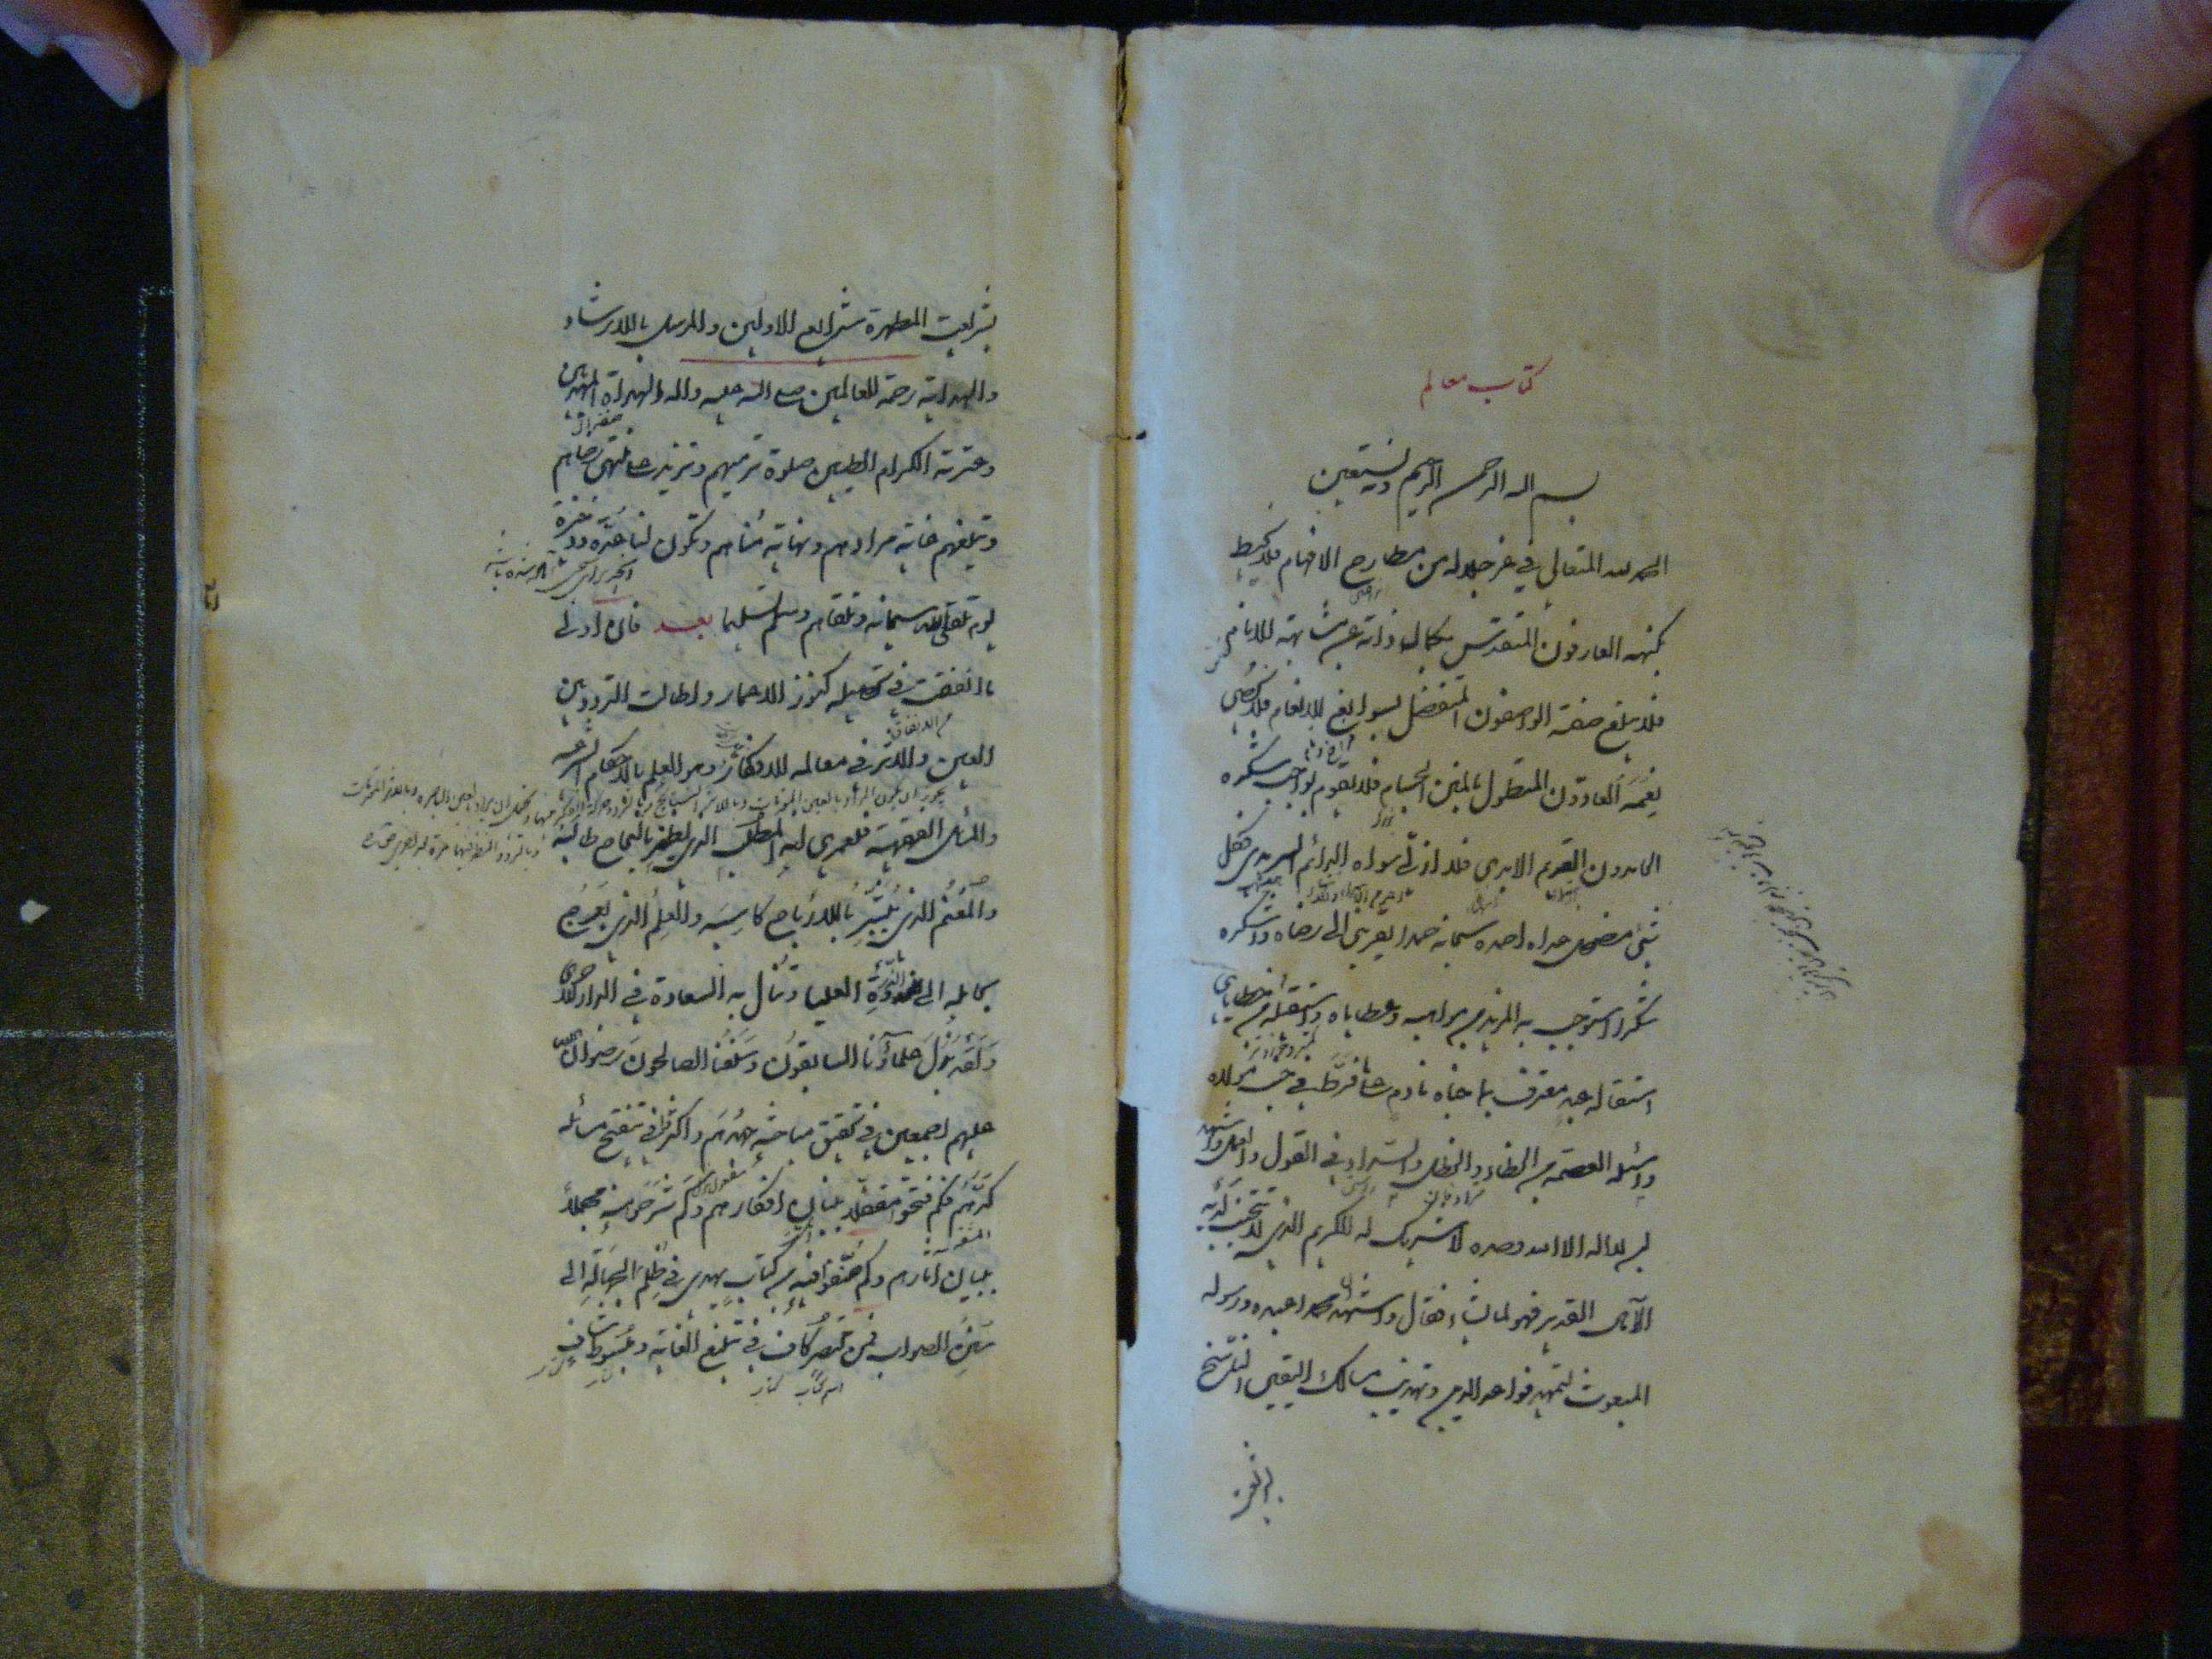 كتاب معالم
بسم الله الرحمن الرحيم وبه نستعين
الحمد لله المتعالي في عز جلاله من مطارح الافهام فلا يحيط
بكنهه العارفون المتقدس بكمال ذاته عن مشابهة الانام
فلا يبلغ صفته الواصفون المتفضل بسوابغ الانعام فلا يحصي
نعمه العادّون المتطول بالمنن الجسام فلا يقوم بواجب شكره
الحامدون القديم الابدي فلا ازلي سواه الدائم السرمدي فكل
شيء مضمحل عداه احمده سبحانه حمدا يقربني الى رضاه واشكره
شكرا استوجب به المزيد من مواهبه وعطاياه واستقيله من خطاياي
استقالة عبد معترف بما جناه نادم على ما فرط في جنب مولاه
واسئله العصمة من الخطاء والخطل والسداد في القول والعمل واشهد
ان لا اله الا الله وحده لا شريك له الكريم الذي لا يخيب لديه
الآمال القدير فهو لما يشاء فعال واشهد ان محمدا عبده ورسوله
المبعوث لتمهيد قواعد الدين وتهذيب مسالك اليقين الناسخ
بشريعته المطهرة شرايع الاولين والمرسل بالارشاد
والهداية رحمة للعالمين صلى الله عليه واله الهداة المهديين
وعترته الكرام الطيبين صلوة ترضيهم وتزيد على منتهى رضاهم
وتبلغهم غاية مرادهم ونهاية مناهم وتكون لنا عدّة وذخيرة
يوم نلقى الله سبحانه ونلقاهم وسلم تسليما بعد فان اولى
ما انفقت في تحصيله كنوز الاعمار واطالت التردد بين
العين والاثر في معالمه الافكار وهو العلم بالاحكام الشرعية
والمسائل الفقهية فلعمري انه المطلب الذي يظفر بالنجاح طالبه
والمغنم الذي يبشر بالارباح كاسبه والعلم الذي يعرج
بحامله الى الذروة العليا وتنال به السعادة في الدار الاخرى
ولقد بذل علماؤنا السابقون وسلفنا الصالحون رضوان الله
عليهم اجمعين في تحقيق مباحثه جهدهم واكثروا في تنقيح مسائله
كدّهم فكم فتحوا مقفلا ببنان افكارهم وكم شرحوا منه مجملا
ببيان آثارهم وكم صنفوا فيه من كتاب يهدي في ظلم الجهالة الى
سنن الصواب فمن مختصر كاف في تبليغ الغاية ومبسوط شاف